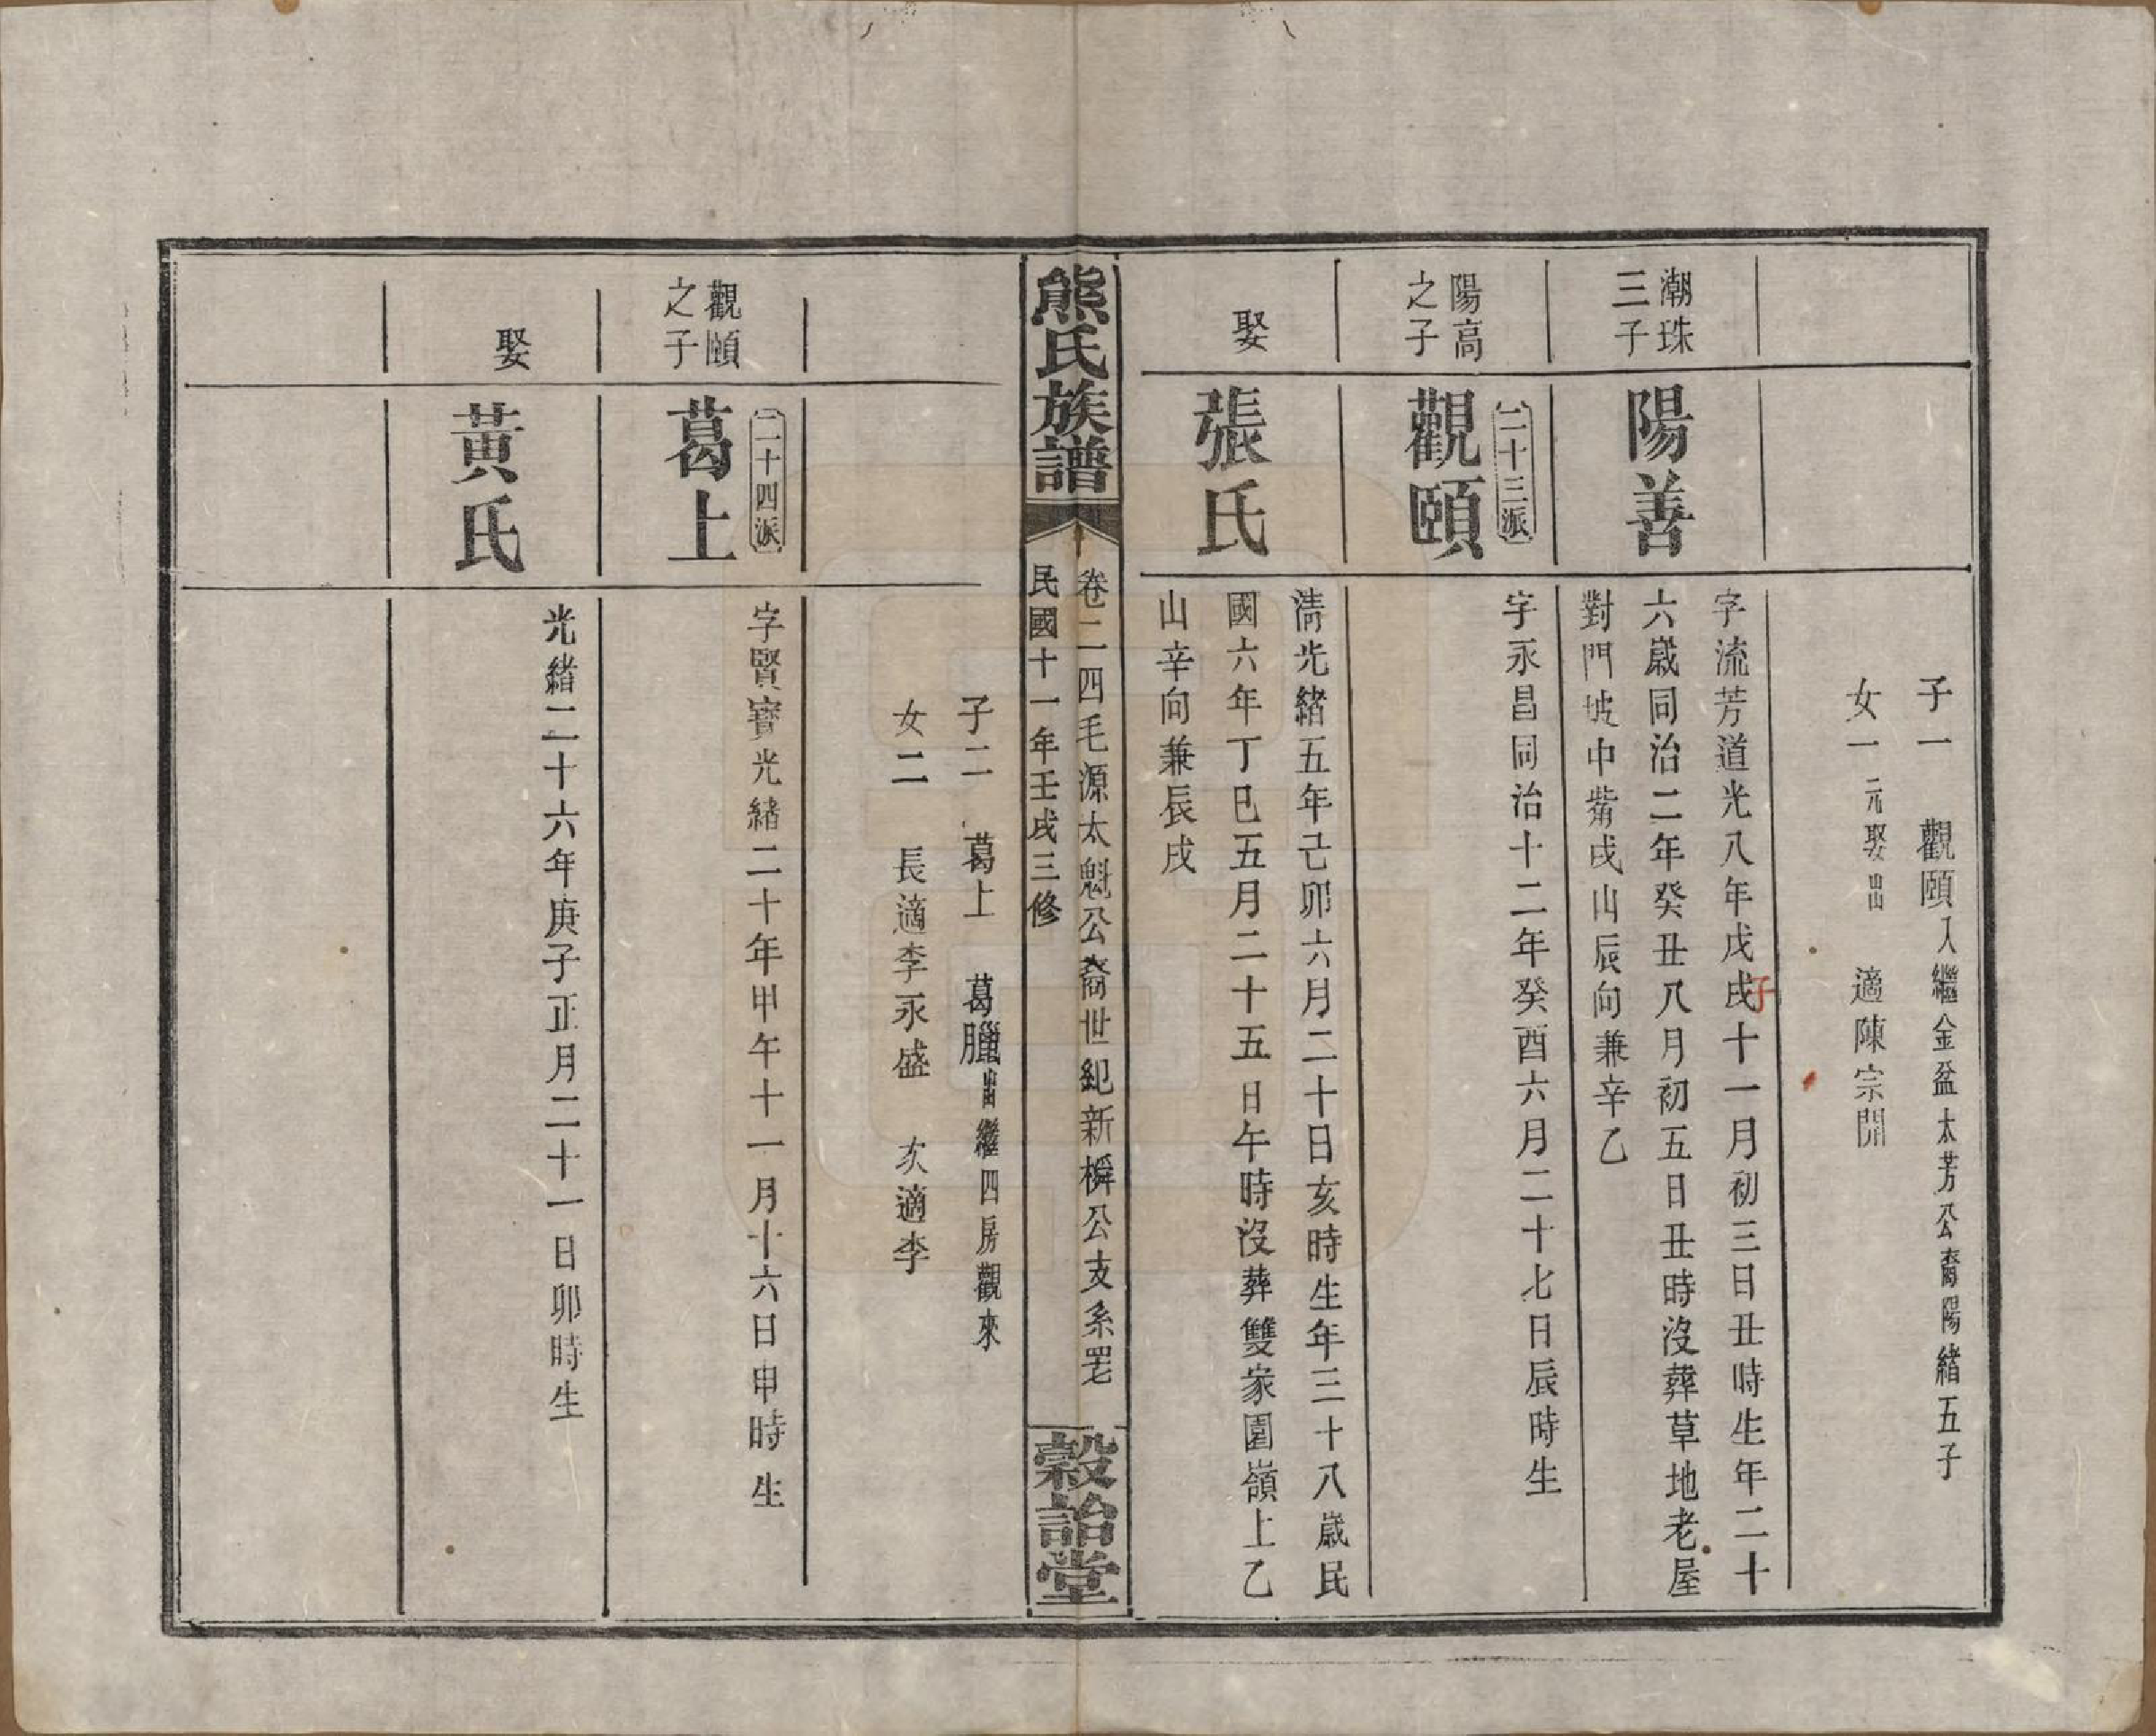 子一　觀頤入繼金盆太芳公裔陽緒五子
女一元娶出　適陳宗開
潮珠
三子
陽善
字流芳道光八年戊戌十一月初三日丑時生年二十
子
六歲同治二年癸丑八月初五日丑時沒葬草地老屋
對門坡中觜戌山辰向兼辛乙
陽高
之子
二十三派
觀頤
字永昌同治十二年癸酉六月二十七日辰時生
娶
張氏
清光緒五年己卯六月二十日亥時生年三十八歲民
國六年丁巳五月二十五日午時沒葬雙家園嶺上乙
山辛向兼辰戌
熊氏族譜
卷二四毛源太魁公裔世紀新橓公支系
民國十一年壬戌三修
穀詒堂
子二　葛上　葛臘出繼四房觀來
女二　長適李永盛　次適李
觀頤
之子
二十四派
葛上
字賢寶光緒二十年甲午十一月十六日申時生
娶
黃氏
光緒二十六年庚子正月二十一日卯時生